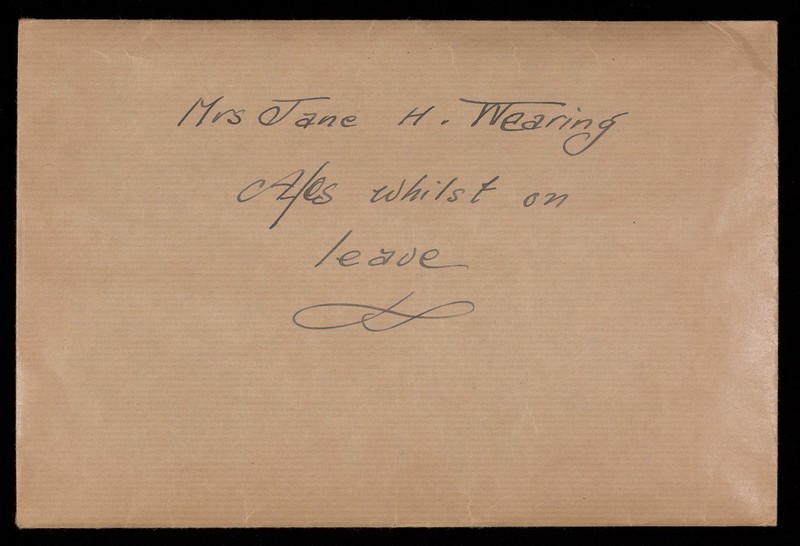 Mrs Jane H. Wearing
A/cs whilst on
leave